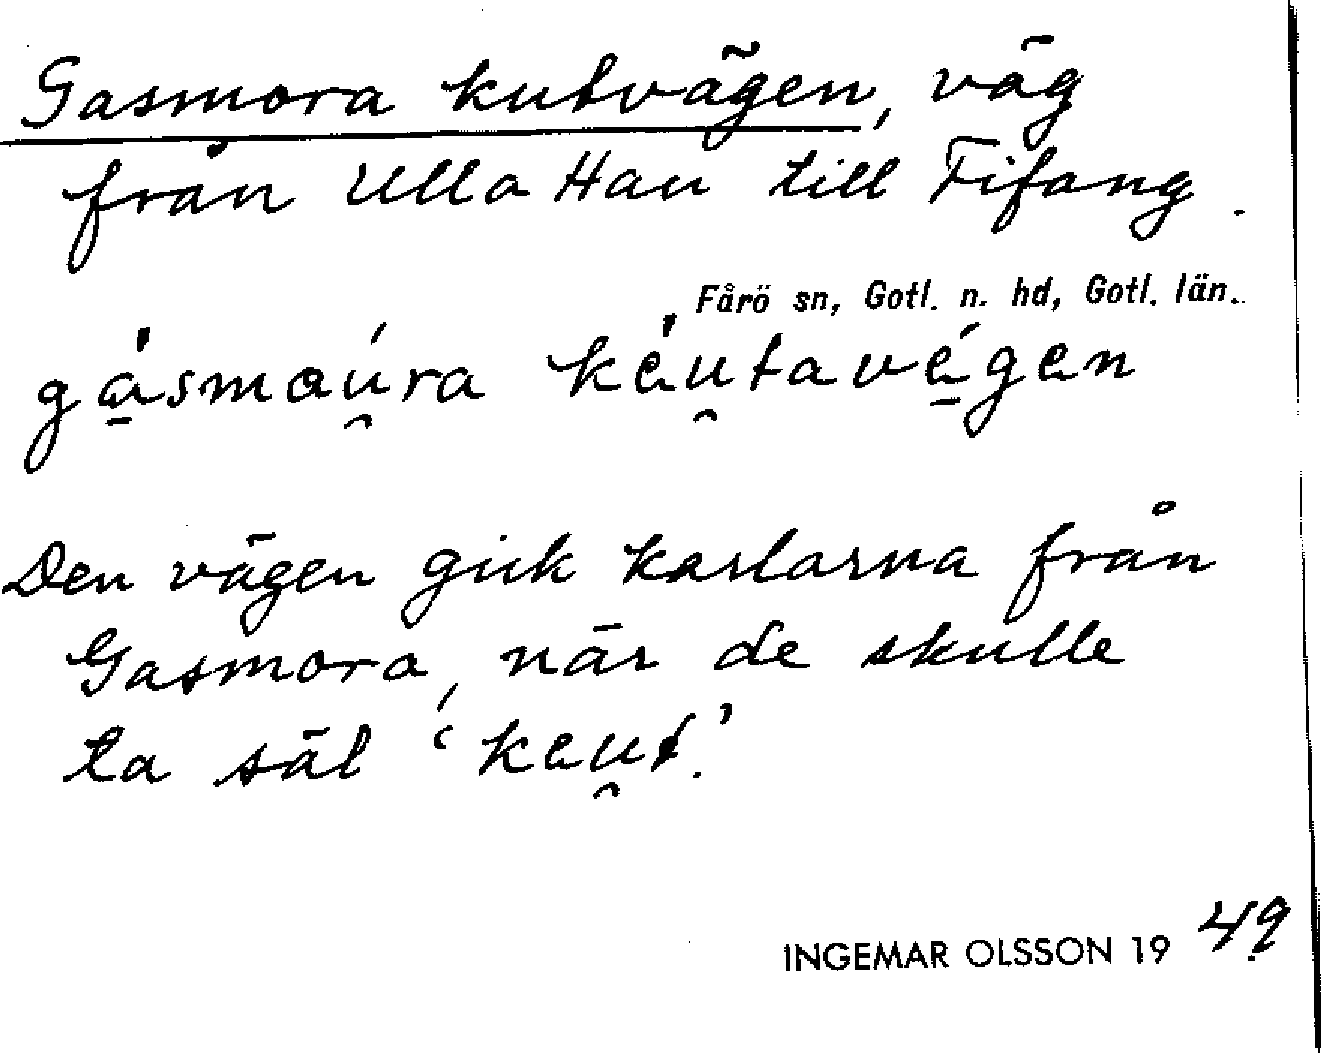 Gasmora kutvägen, väg
från Ulla Hau till Fifang.
Fårö sn, Gotl. n. hd, Gotl. län.
gásmou̯ra kéu̯tavégen
Den vägen gick karlarna från
Gasmora, när de skulle
ta säl 'keu̯t'.
INGEMAR OLSSON 1949